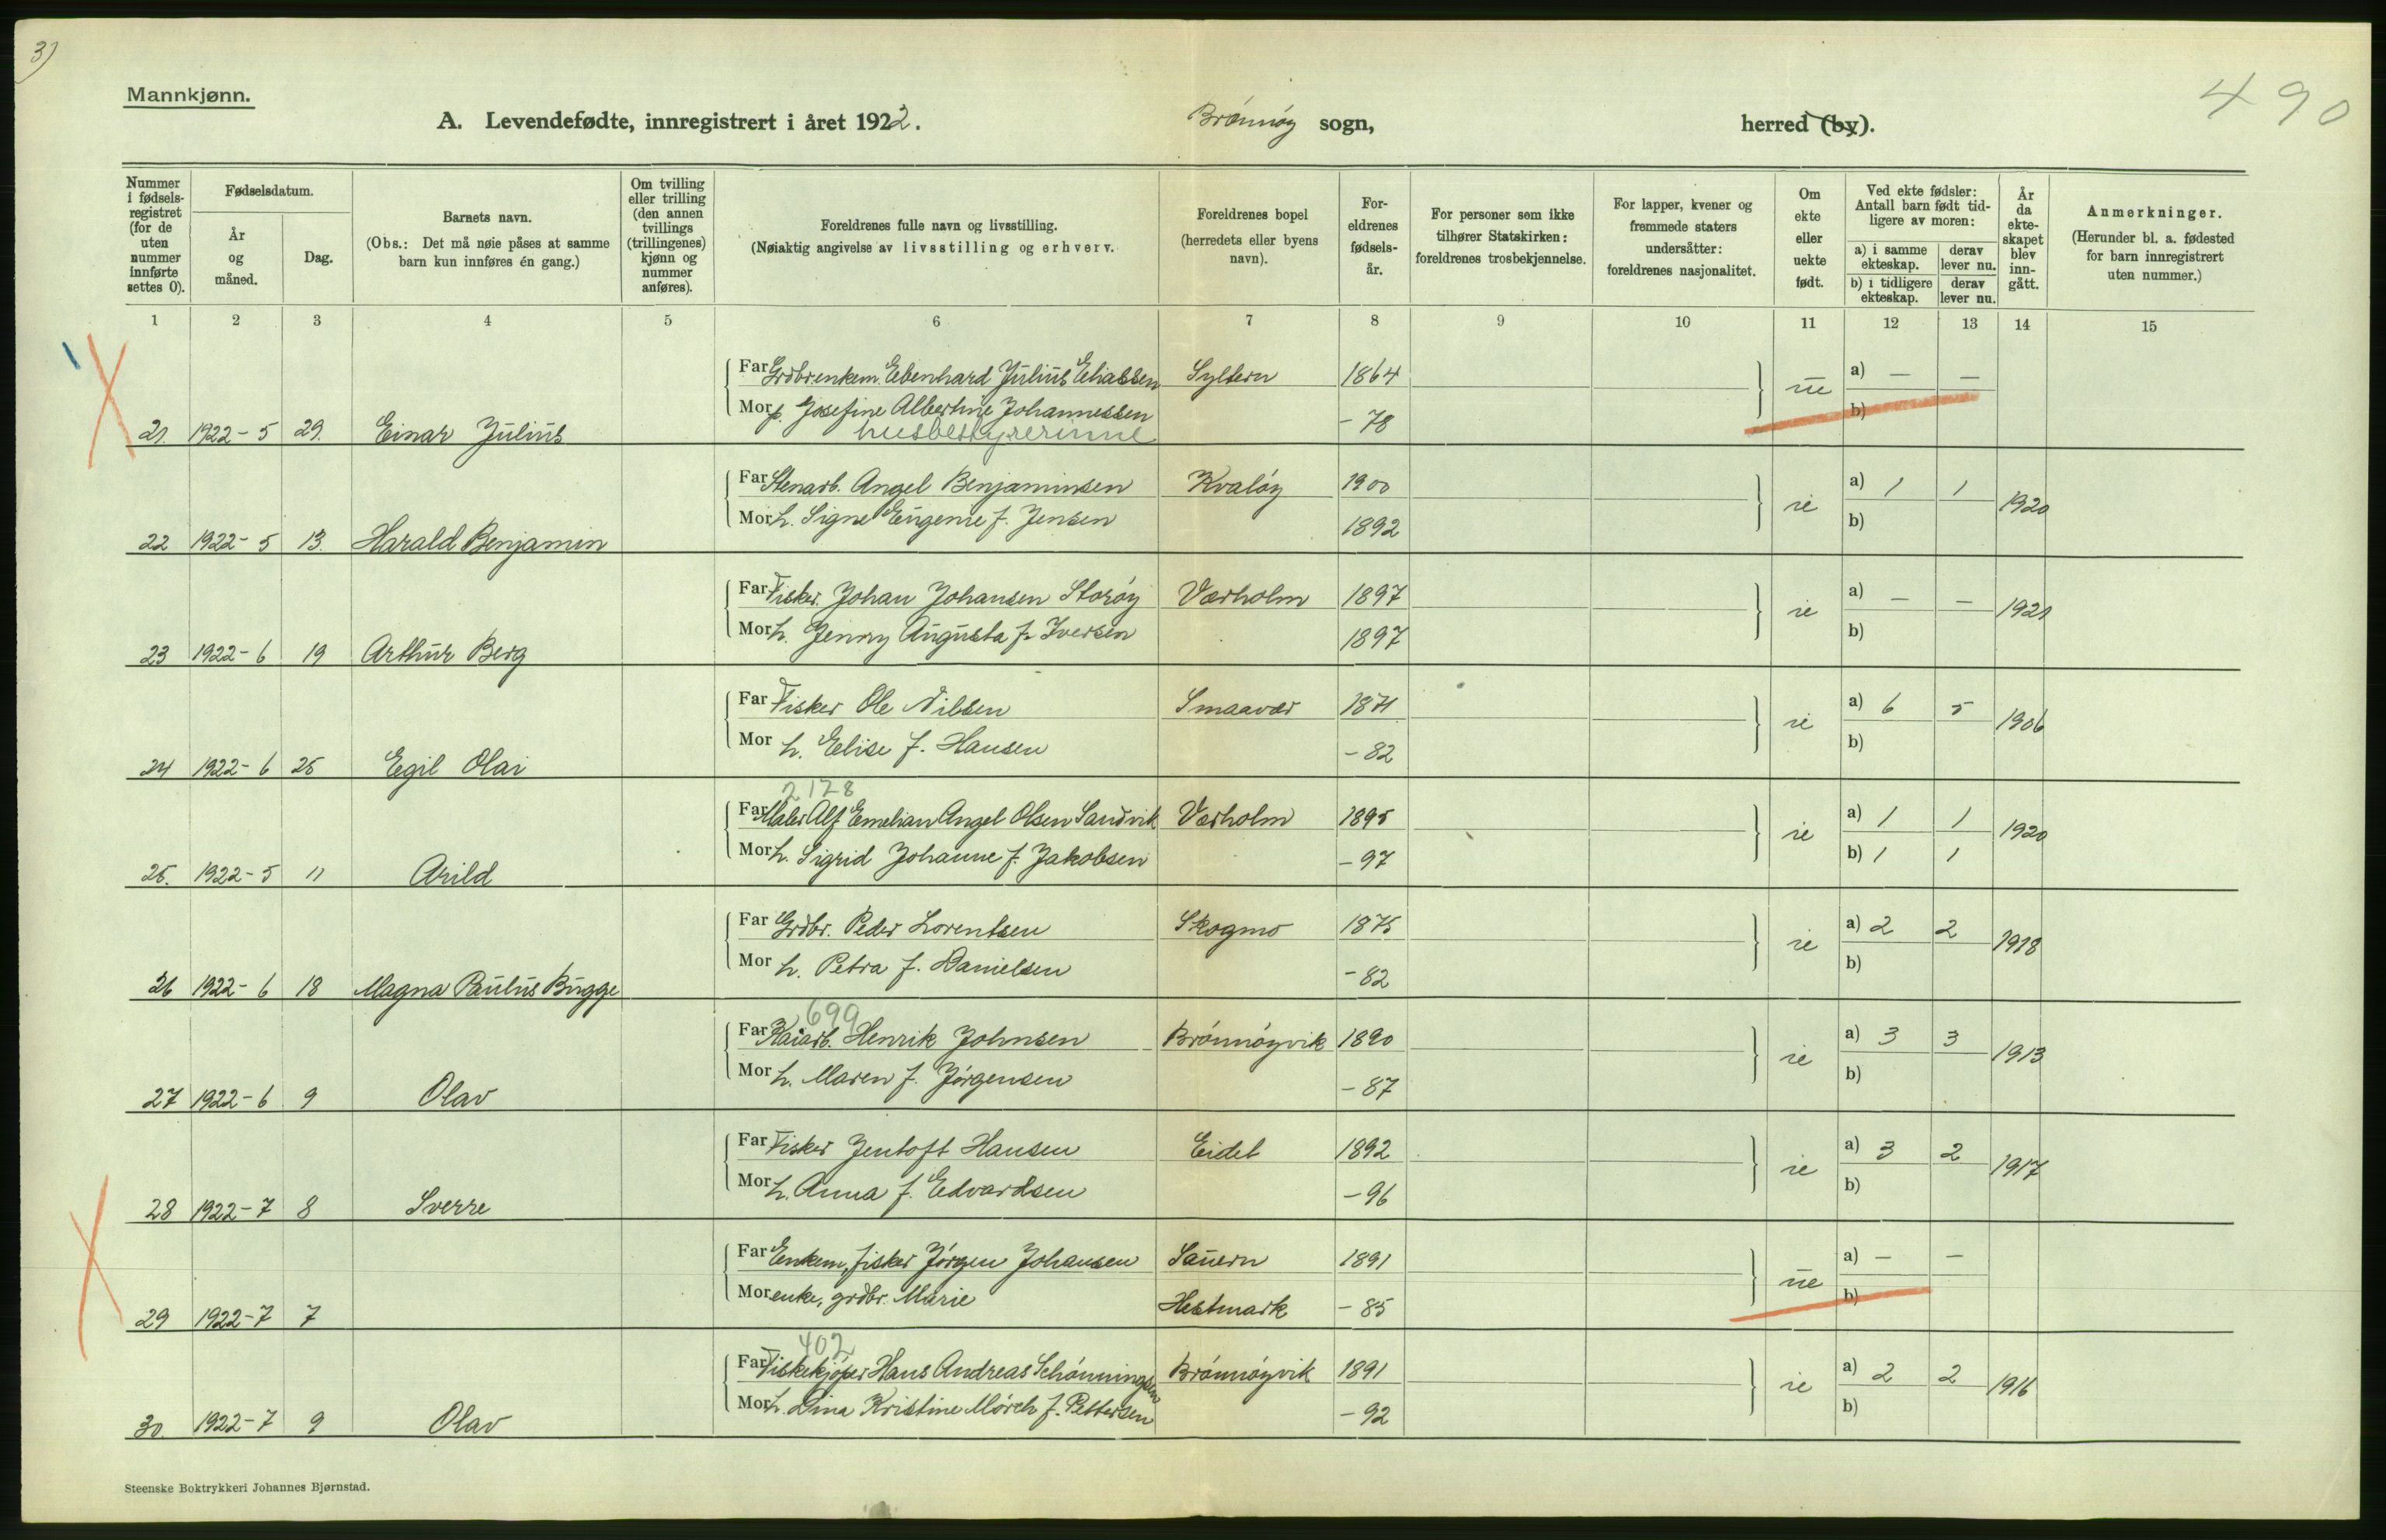 3)
490
Mannkjønn.
A. Levendefødte, innregistrert i året 1922. Brønnøy sogn, herred (by).
Nummer i fødsels-registret (for de uten nummer innførte settes 0).
Fødselsdatum.
År og måned.
Dag.
Barnets navn.
(Obs.: Det må nøie påses at samme barn kun innføres én gang.)
Om tvilling eller trilling (den annen tvillings (trillingenes) kjønn og nummer anføres).
Foreldrenes fulle navn og livsstilling.
(Nøiaktig angivelse av livsstilling og erhverv.
Foreldrenes bopel (herredets eller byens navn).
For-eldrenes fødsels-år.
For personer som ikke tilhører Statskirken: foreldrenes trosbekjennelse.
For lapper, kvener og fremmede staters undersåtter: foreldrenes nasjonalitet.
Om ekte eller uekte født.
Ved ekte fødsler: Antall barn født tid-ligere av moren:
a) i samme ekteskap. derav lever nu.
b) i tidligere ekteskap. derav lever nu.
År da ekte-skapet blev inn-gått.
Anmerkninger.
(Herunder bl. a. fødested for barn innregistrert uten nummer.)
1 2 3 4 5 6 7 8 9 10 11 12 13 14 15
Far Grdbr. enkem. Ebenhard Julius Eliassen Syltern 1864 ue a) — —
Mor p. Josefine Albertine Johannessen - 78 b)
husbestyrerinne
21 1922-5 29. Einar Julius
Far Stenarb. Angel Benjaminsen Kvaløy 1900 ie a) 1 1 1920
Mor h. Signe Eugenie f. Jensen 1892 b)
22 1922-5 13. Harald Benjamin
Far Fisker. Johan Johansen Storøy Værholm 1897 ie a) — — 1921
Mor h. Jenny Augusta f. Iversen 1897 b)
23 1922-6 19 Arthur Berg
Far Fisker Ole Nilsen Smaavær 1871 ie a) 6 5 1906
Mor h. Elise f. Hansen - 82 b)
24 1922-6 25 Egil Olai
2128
Far Maler Alf Emelian Angel Olsen Sandvik Værholm 1895 ie a) 1 1 1920
Mor h. Sigrid Johanne f. Jakobsen - 97 b) 1 1
25. 1922-5 11 Arild
Far Grdbr. Peder Lorentsen Skogmo 1875 ie a) 2 2 1918
Mor h. Petra f. Danielsen - 82 b)
26 1922-6 18 Magna Paulus Bugge
699
Far Kaiarb. Henrik Johnsen Brønnøyvik 1890 ie a) 3 3 1913
Mor h. Maren f. Jørgensen - 87 b)
27 1922-6 9 Olav
Far Fisker Jentoft Hansen Eidet 1892 ie a) 3 2 1917
Mor h. Anna f. Edvardsen - 96 b)
28 1922-7 8 Sverre
Far Enkem, fisker Jørgen Johansen Sauern 1891 ue a) — —
Mor enke, grdbr. Marie Hestmark - 85 b)
29 1922-7 7
402
Far Fiskekjøper Hans Andreas Schønningsen Brønnøyvik 1891 ie a) 2 2 1916
Mor h. Lina Kristine Mørch f. Pettersen - 92 b)
30 1922-7 9 Olav
Steenske Boktrykkeri Johannes Bjørnstad.